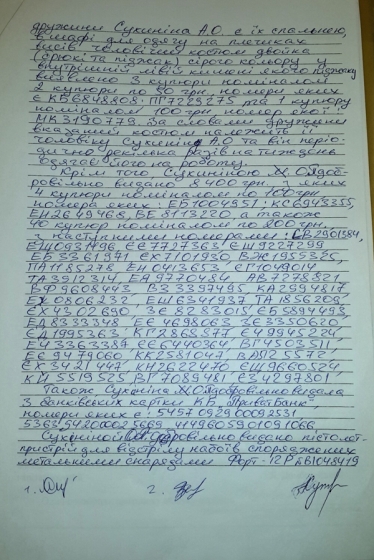 дружини Сукнініна А.О. є їх спальнею,
в шафі для одягу на плечиках
висів чоловічий костюм двойка
(брюкі та піджак) сірого кольору у
внутрішній лівій кишені якого піджаку
виявлено 3 купюри номіналом
2 купюри по 50 грн. номери яких
є КБ6848808; ПГ7223275 та 1 купюру
номіналом 100 грн. номер якої
МК3190779. За словами дружини
вказаний костюм належить її
чоловіку А.О та він періо-
дично декілька разів на тиждень
одягає його на роботу.
Крім того, Сукніною М.О. добро-
вільно видано 8400 грн. з яких
4 купюри номіналом по 100 грн
номера яких: ЕБ1004951; КС6943355,
ЕН2649468, ВЕ8113220, а також
40 купюр номіналом по 200 грн.
з наступними номерами: 2901384,
ЕЩ0931496, ЕЄ7727363, ЕЩ9227299,
ЕБ3361971, ЕХ7101930, ВЖ1955325,
ПА1185278, ЕН0413653, СГ1049014
ТА3912314, ЕА9770484, АВ7278521
ВФ9608443, ВЗ3397495, КА2594817
ЕХ0806232, ЕШ6341937, ТА1856208,
ЕХ4302690, ЗЄ8283015, ЄБ5894493,
ЕД8333348, ЕЄ4698063, ЗЄ3350620,
ЄД1995363, КГ2868577, ЄЧ9945224,
ЕЧ3363387, ЄЄ6440364, ВГ4503511,
ЕЄ9479060, КК2581047, ВД125572,
ЕХ3421447, КН2622470, ЕЩ9660524,
КЙ5519525, ВГ7089481, ЄЗ4297801
Також Сукніна М.О. добровільно видала
3 банківських картки КБ „Приватбанк"
номери яких є: 5457092900092531
5363542000025669, 4149605901091066
Сукніной добровільно видано пістолет-
пристрій для відстрілу набоїв споряджених
метальними снарядами Форт-12Р 1048419
1. 2.